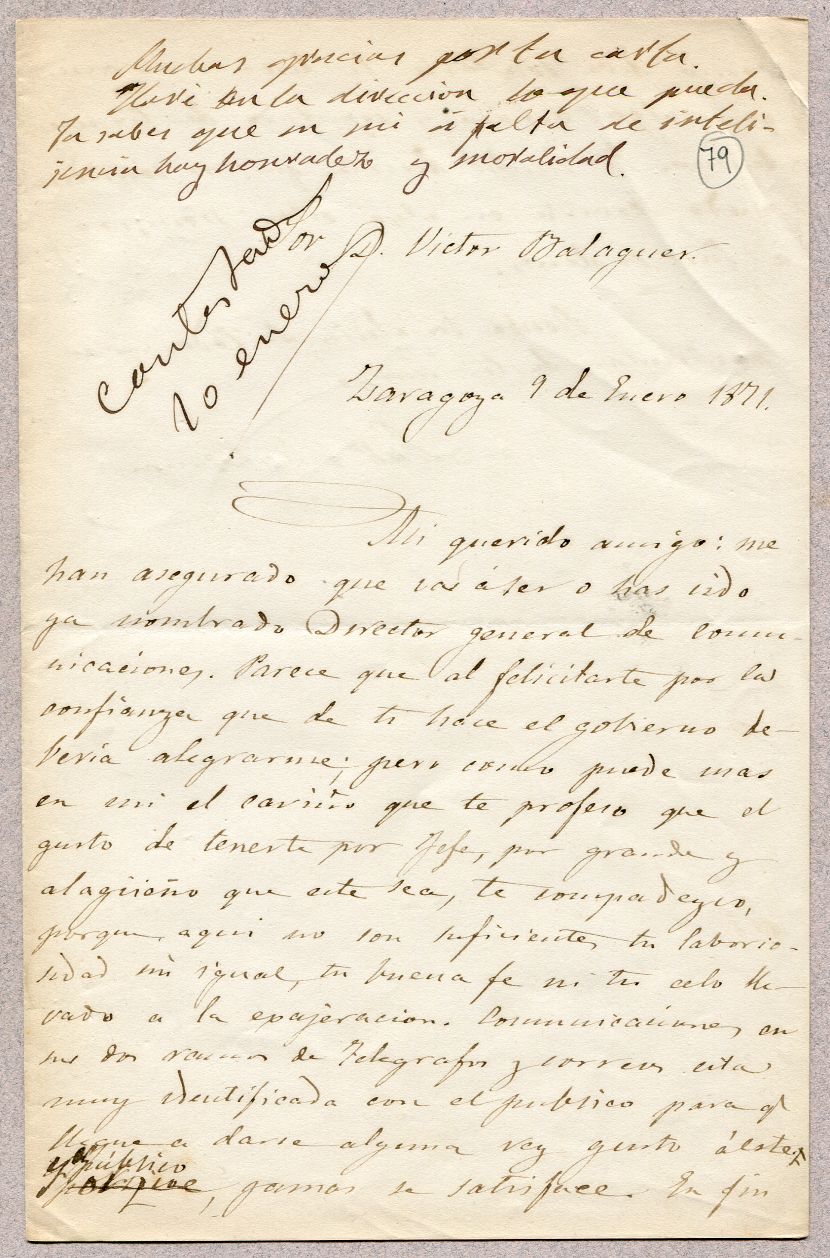 Muchas gracias por tu carta.
Haré en la direccion lo que pueda.
Ya sabes que en mi á falta de inteli-
jencia hay honradez y moralidad.
79
Sor D. Victor Balaguer.
contestado
10 enero
Zaragoza 9 de Enero 1871.
Mi querido amigo: me
han asegurado que vas á ser o has sido
ya nombrado Director general de comu-
nicaciones. Parece que al felicitarte por la
confianza que de ti hace el gobierno de-
beria alegrarme; pero como puede mas
en mi el cariño que te profeso que el
gusto de tenerte por Jefe, por grande y
alagüeño que este sea, te compadezco,
porque aqui no son suficientes tu laborio-
sidad sin igual, tu buena fe ni tu celo lle-
vado a la exajeracion. Comunicaciones en
sus dos ramos de Telegrafos y correos esta
muy identificada con el publico para q
llegue a darse alguna vez gusto á este
y el público
porque, gamas se satisface. En fin